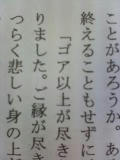 ことがあろうか。あ
終えることもせずに
「ゴア以上が尽き
りました。ご縁が尽き
つらく悲しい身の上